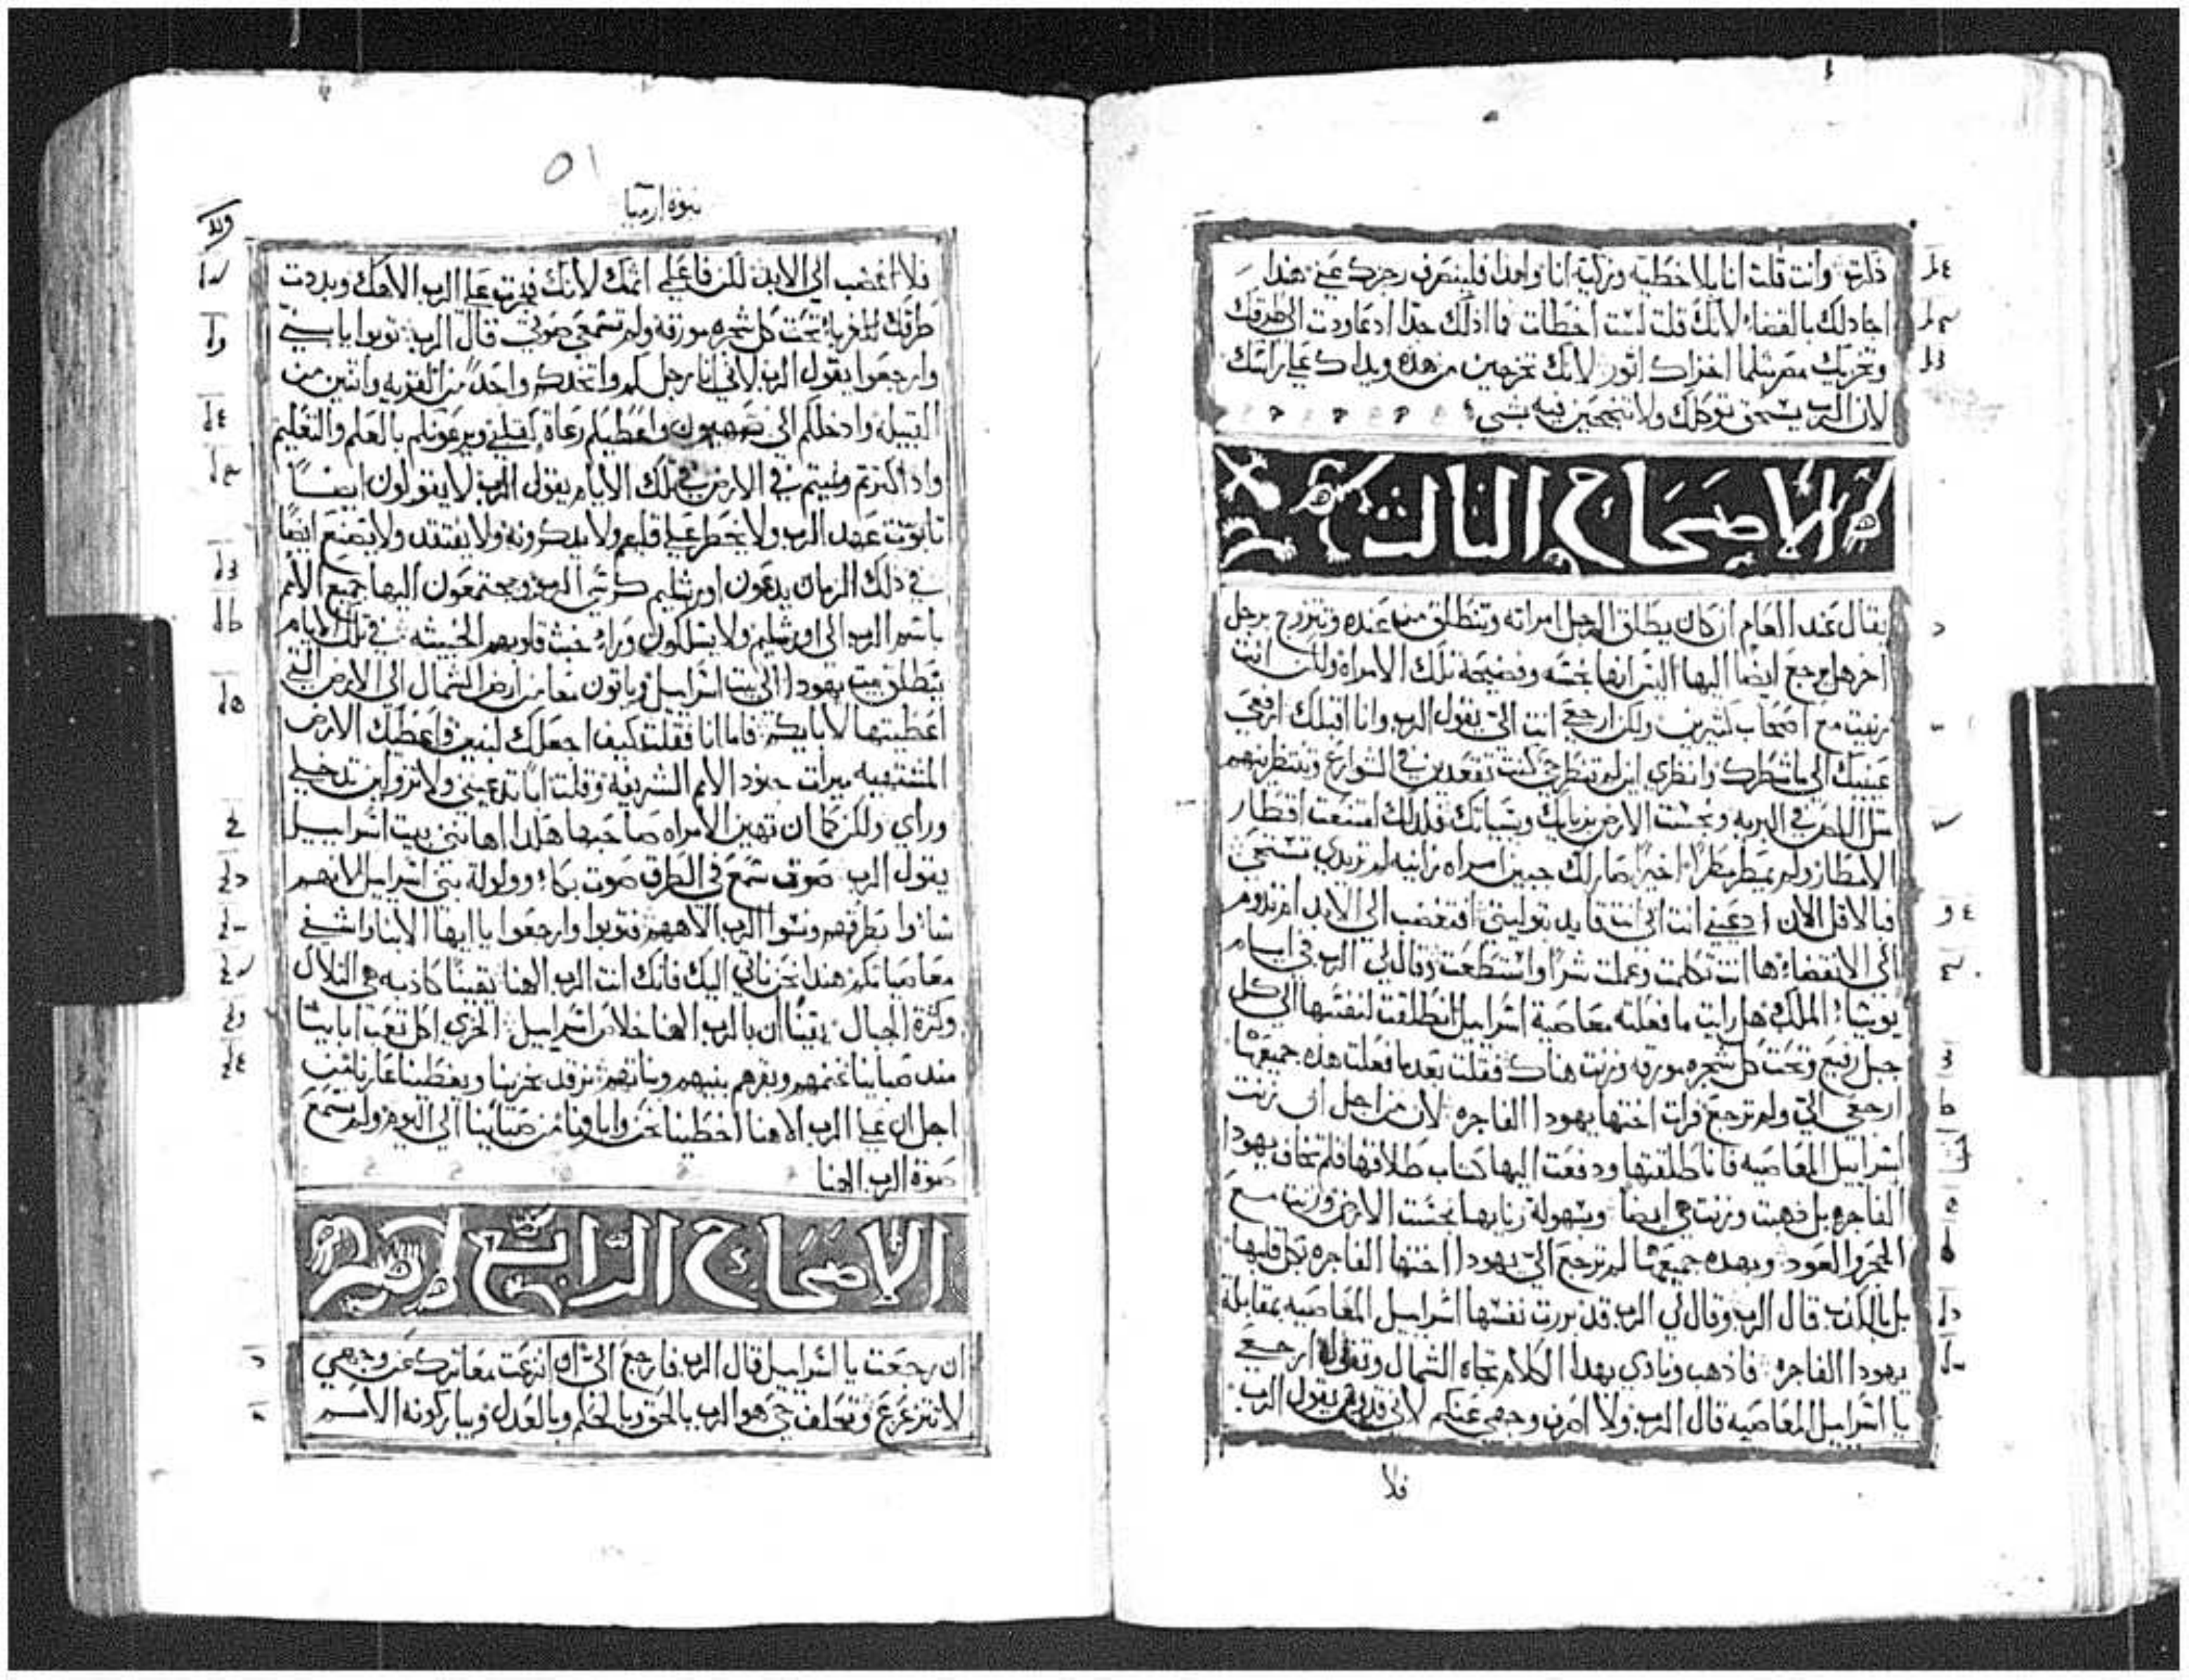 ذكرته وانت قلت انا بلا خطيه وزكيه انا واهدا فلينصرف رجزك عني هندا
اجادلك بالقضاء لانك قلت لست اخطات فما اذلك جدا اد عاودت الى طرقك
وتخزيك مصر مثلما اخزاك اتور لانك تخرجين من هذه ويداك على راسك
لان الرب سحق توكلك ولا تنجحين فيه بشي
الاصحاح الثالث
يقال عند العام ان كان يطلق الرجل امراته وتنطلق من عنده وتتزوج برجل
اخر هل يرجع ايضا اليها اليس انها نجسه وفضيحة تلك الامراة ولكن انت
زنيت مع اصحاب كثيرين ولكن ارجعي انت الي يقول الرب وانا اقبلك ارفعي
عينيك الى ما شطرك وانظري اين لم تنطرحي كنت تقعدين في الشوارع وتنتظرينهم
مثل اللص في البريه ونجست الارض بزناك وسياتك فلدلك امتنعت اقطار
الامطار ولم يمطر مطرا اخيرا صار لك جبين امراه زانيه لم تريدي تستحي
فبالاقل الان ادعيني انت ابي انت قايد بتوليتي افتغضب الى الابد ام تدوم
الى الانقضاء ها انت تكلمت وعملت شرا واستطعت وقال لي الرب في ايام
يوشياء الملك هل رايت ما فعلته معاصية اسراييل انطلقت لنفسها الى كل
جبل رفيع وتحت كل شجره مورقه وزنت هناك فقلت بعد ما فعلت هذه جميعها
ارجعي الي ولم ترجع فرات اختها يهودا الفاجره لان من اجل ان زنت
اسراييل المعاصيه فانا طلقتها ودفعت اليها كتاب طلاقها فلم تخاف يهودا
الفاجره بل ذهبت وزنت هي ايضا وبسهولة زنايها نجست الارض وزنت مع
الحجر والعود وبهده جميعها لم ترجع الي يهودا اختها الفاجره بكل قلبها
بل بالكذب قال الرب وقال لي الرب قد بررت نفسها اسراييل المعاصيه بمقابلة
يهودا الفاجره فاذهب ونادي بهدا الكلام تجاه الشمال وتقول ارجعي
يا اسراييل المعاصيه قال الرب ولا اصرف وجهي عنكم لاني قدوس يقول الرب
فلا
نبوة ارميا
٥١
فلا اغضب الى الابد لكن فاعلمي اثمك لانك فجرت على الرب الاهك وبددت
طرقك للغرباء تحت كل شجره مورقه ولم تسمعي صوتي قال الرب توبوا يا بني
وارجعوا يقول الرب لاني انا رجلكم واتخدكم واحدا من القريه واتنين من
القبيله وادخلكم الى صهيون واعطيكم رعاة كقلبي ويرعونكم بالعلم والتعليم
واداكترتم ونميتم في الارض في تلك الايام يقول الرب لا يقولون ايضا
تابوت عهد الرب ولا يخطر على قلبهم ولا يدكرونه ولا يفتقد ولا يصنع ايضا
في ذلك الزمان يدعون اورشليم كرسي الرب ويجتمعون اليها جميع الامم
باسم الرب الى اورشليم ولا يسلكون وراء خبث قلوبهم الخبيثه في تلك الايام
ينطلق بيت يهودا الى بيت اسراييل وياتون معا من ارض الشمال الى الارض التي
اعطيتها لابايكم فاما انا فقلت كيف اجعلك لبنين واعطيك الارض
المشتهيه ميرات جنود الامم الشريفه وقلت ابا تدعيني ولا تزولين تدخلي
وراي ولكن كما ان تهين الامراه صاحبها هكدا اهانني بيت اسراييل
يقول الرب صوت سمع في الطرق صوت بكاء وولولة بني اسراييل لانهم
شاءوا بطرقهم ونسوا الرب الاههم فتوبوا وارجعوا يا ايها الابناء اشفي
معاصياتكم هندا نحن ناتي اليك فانك انت الرب الاهنا يقينا كاذبه هي التلال
وكثرة الجبال يقينا ان بالرب الاهنا خلاص اسراييل الخزي اكل تعب ابايينا
مند صباينا غنمهم وبقرهم بنيهم وبناتهم نرقد بخزينا ويغطينا عارنا من
اجل ان على الرب الاهنا اخطينا نحن وابايونا من صباينا الى اليوم ولم نسمع
صوة الرب الاهنا
الاصحاح الرابع
ان رجعت يا اسراييل قال الرب فارجع الي ان انزعت معاترك عن وجهي
لا تتزعزع وتحلف حي هو الرب بالحق وبالحكم وبالعدل ويباركونه الامم